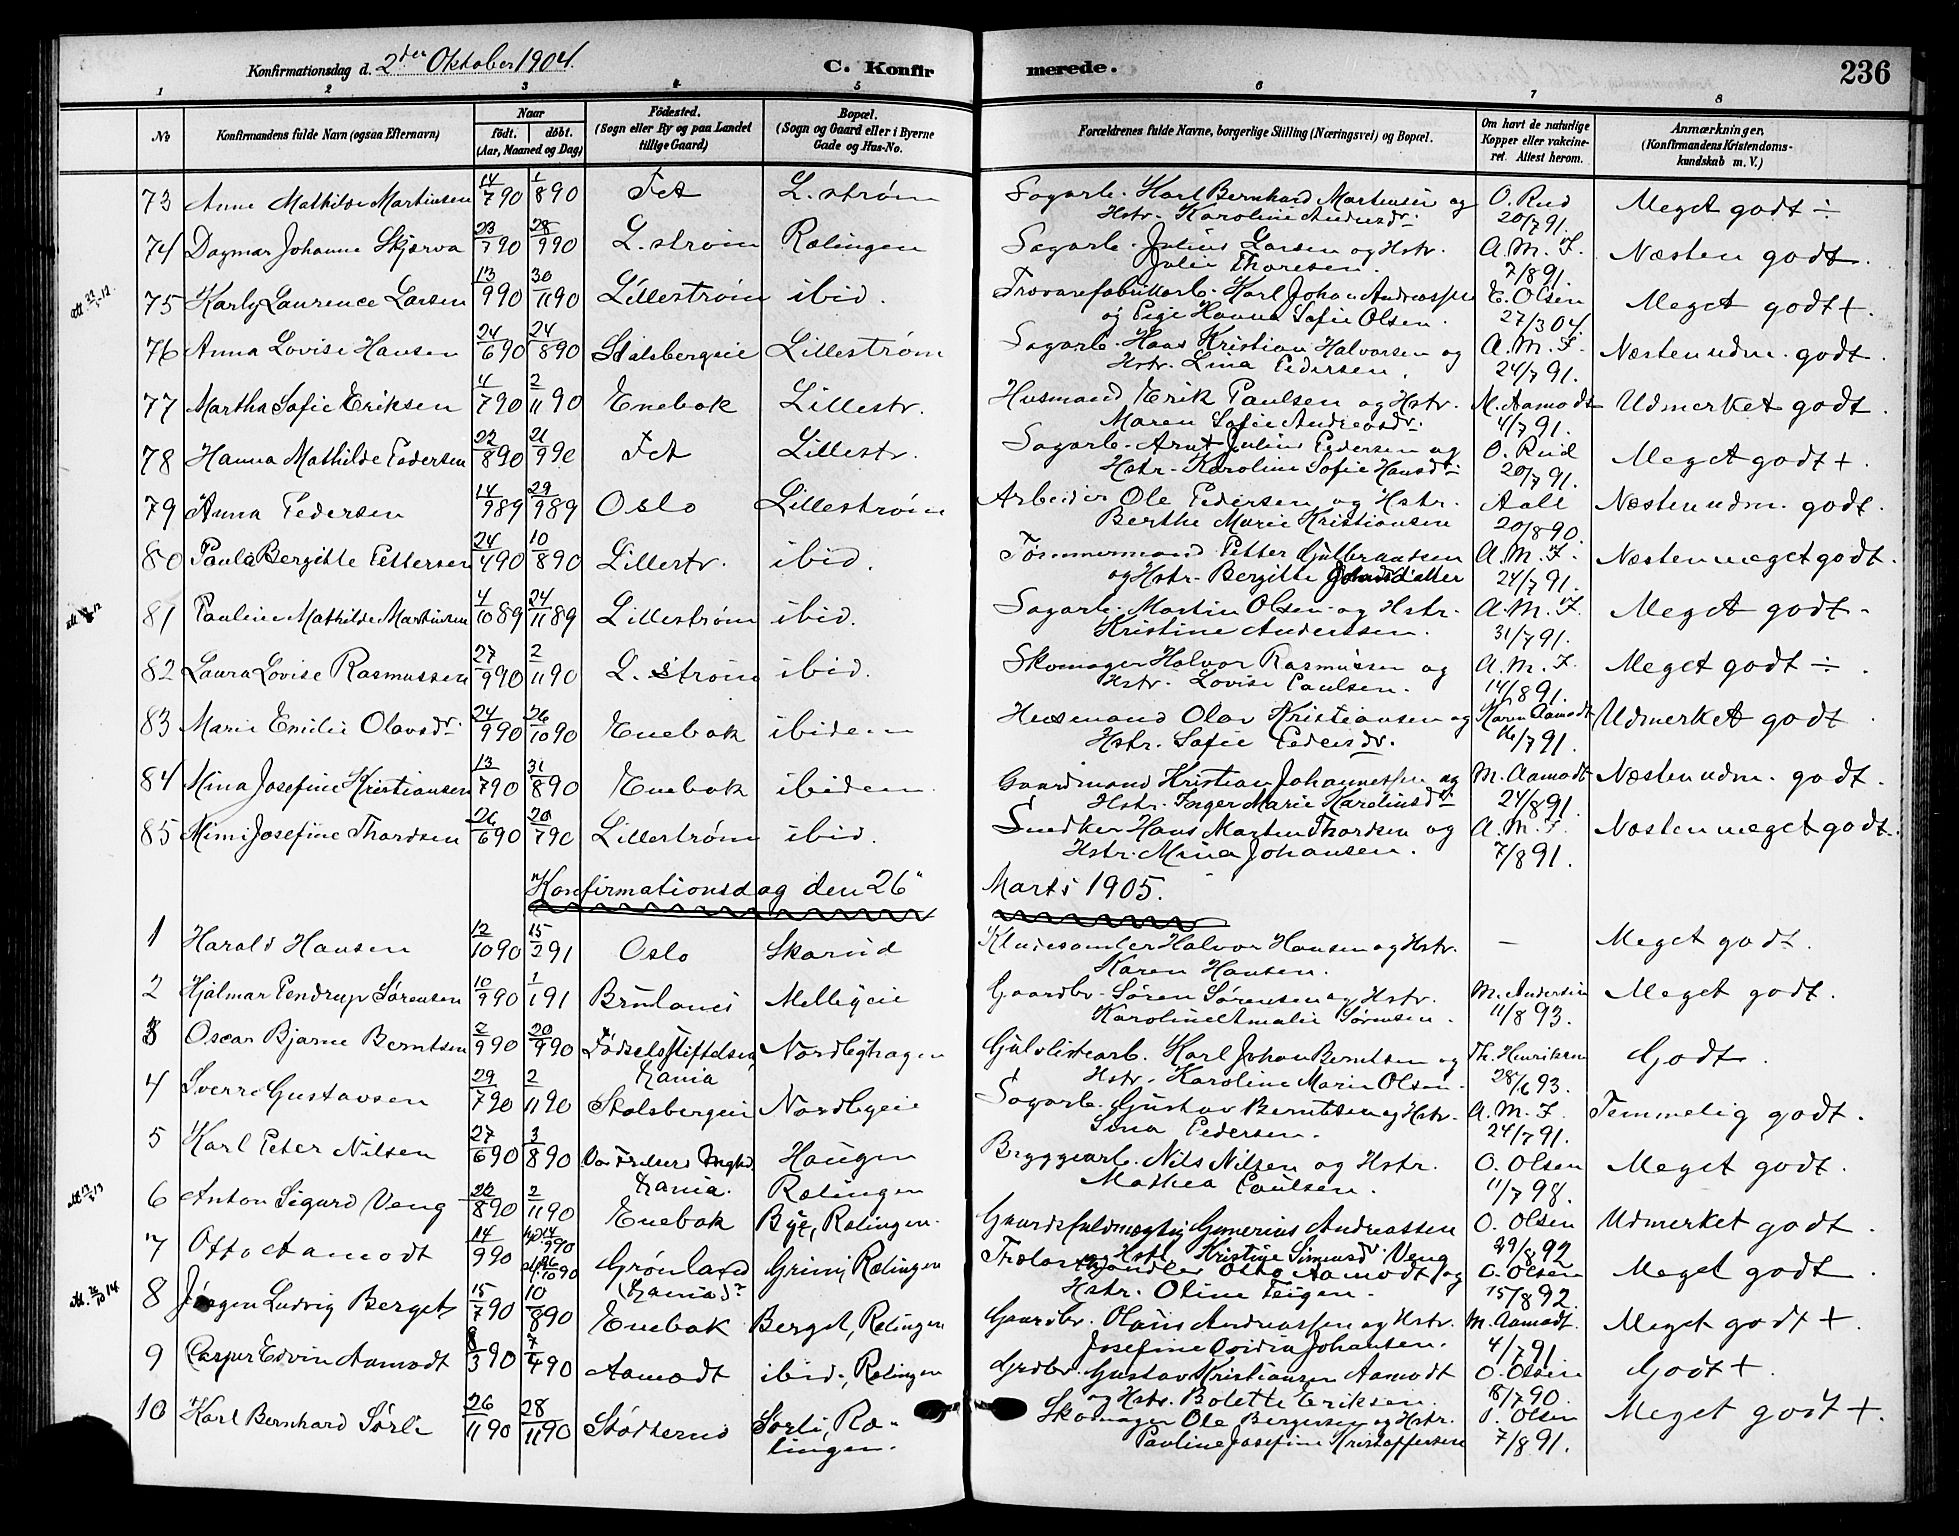 Konfirmationsdag d. 2den Oktober 1904. C. Konfirmerede. 236
1 2 3 4 5 6 7 8
No Konfirmandens fulde Navn (ogsaa Efternavn) Naar født. døbt. (Aar, Maaned og Dag) Fødested. (Sogn eller By og paa Landet tillige Gaard) Bopæl. (Sogn og Gaard eller i Byerne Gade og Hus-No. Forældrenes fulde Navne, borgerlige Stilling (Næringsvei) og Bopæl. Om havt de naturlige Kopper eller vakcineret. Attest herom. Anmærkninger, (Konfirmandens Kristendomskundskab m. V.)
73 Anne Mathilde Martinsen 14/7 90 1/8 90 Fet L. strøm Sagarb. Karl Bernhard Martinsen og O. Rud Meget godt ÷
Hstr. Karoline Andersdr. 20/7 91.
74 Dagmar Johanne Skjærva 23/7 90 28/9 90 L. strøm Rælingen Sagarb. Julius Larsen og Hstr. A. M. F. Næsten godt.
Julie Thoresen. 7/8 91.
75 Karly Laurence Larsen 13/9 90 30/11 90 Lillestrøm ibid. Trævarefabrikarb. Karl Johan Andreassen E. Olsen Meget godt +.
og Pige Hanna Sofie Olsen. 27/3 04.
76 Anna Lovise Hansen 24/6 90 24/8 90 Stalsbergeie Lillestrøm Sagarb. Hans Kristian Halvorsen og A. M. F. Næsten udm. godt.
Hstr. Lina Pedersen. 24/7 91.
77 Martha Sofie Eriksen 4/7 90 2/11 90 Enebak Lillestr. Husmand Erik Paulsen og Hstr. M. Aamodt Udmerket godt.
Maren Sofie Andreasdr. 4/7 91.
78 Hanna Mathilde Pedersen 22/8 90 21/9 90 Fet Lillestr. Sagarb. Arnt Julius Pedersen og O. Rud Meget godt +.
Hstr. Karoline Sofie Hansdr. 20/7 91.
79 Anna Pedersen 14/9 89 29/9 89 Oslo Lillestrøm Arbeider Ole Pedersen og Hstr. Aall Næsten udm. godt.
Berthe Marie Kristiansen 20/8 90.
80 Paula Bergitte Pettersen 24/4 90 10/8 90 Lillestr. ibid. Tømmermand Petter Gulbrandsen A. M. F. Næsten meget godt.
og Hstr. Bergitte 24/7 91.
81 Pauline Mathilde Martinsen 4/10 89 24/11 89 Lillestrøm ibid. Sagarb. Martin Olsen og Hstr. A. M. F. Meget godt.
Kristine Andersen. 31/7 91.
82 Laura Lovise Rasmussen 27/9 90 2/11 90 L. strøm ibid. Skomager Halvor Rasmussen og A. M. F. Meget godt ÷.
Hstr. Lovise Paulsen. 14/8 91.
83 Marie Emilie Olavsdr. 24/9 90 26/10 90 Enebak ibidem Husmand Olav Kristiansen og Karen Aamodt Udmerket godt.
Hstr. Sofie Pedersdr. 16/7 91.
84 Mina Josefine Kristiansen 13/7 90 31/8 90 Enebak ibidem. Gaardmand Kristian Johannessen og M. Aamodt Næsten udm. godt.
Hstr. Inger Marie Karelinsdr. 24/8 91.
85 Mimi Josefine Thordsen 26/6 90 20/7 90 Lillestrøm ibid. Snedker Hans Martin Thordsen og A. M. F. Næsten meget godt.
Hstr. Mina Johansen. 7/8 91.
"Konfirmationsdag den 26" Marts 1905.
1 Harald Hansen 12/10 90 15/2 91 Oslo Skarud Kludesamler Halvor Hansen og Hstr. — Meget godt.
Karen Hansen.
2 Hjalmar Pendrup Sørensen 10/9 90 1/1 91 Brulands Melleigeie Gaardbr. Søren Sørensen og Hstr. M. Andersen Meget godt.
Karoline Amalie Sørensen. 11/8 93.
3 Oscar Bjarne Berntsen 2/9 90 20/9 90 Fødselsstiftelsen Nordlighagen Gulvlistearb. Karl Johan Berntsen og Th. Henriksen Godt.
Kania Hstr. Karoline Marie Olsen. 28/6 93.
4 Sverre Gustavsen 29/7 90 2/11 90 Stalsbergeie Nordbyeie Sagarb. Gustav Berntsen og Hstr. A. M. F. Temmelig godt.
Lina Pedersen. 24/7 91.
5 Karl Peter Nilsen 27/6 90 3/8 90 Vor Frelsers Mghd. Haugen Bryggearb. Nils Nilsen og Hstr. O. Olsen Meget godt.
Kania. Rælingen Mathea Paulsen. 11/7 98.
6 Anton Sigurd Veng 22/8 90 2/11 90 Enebak Bye, Rælingen. Gaardsfuldmægtig Gunerius Andreassen O. Olsen Udmerket godt.
og Hstr. Kristine Simensdr. Veng 29/8 92
7 Otto Aamodt 14/9 90 26/10 90 Grønland Grini, Rælingen Trælasthandler Otto Aamodt og O. Olsen Meget godt.
Kania Hstr. Oline Teigen. 15/8 92.
8 Jørgen Ludvig Berget 15/7 90 10/8 90 Enebak Berget, Rælingen Gaardbr. Olaus Andreassen og Hstr. M. Aamodt. Meget godt +.
Josefine Ovidia Johansen. 4/7 91.
9 Casper Edvin Aamodt 8/3 90 7/4 90 Aamodt ibid., Rælingen Grdbr. Gustav Kristiansen Aamodt O. Olsen Godt +
og Hstr. Bolette Eriksen. 8/7 90.
10 Karl Bernhard Sørli 26/11 90 28/11 90 Stødterud Sørli, Rælingen. Skomager Ole Bergersen og Hstr. O. Olsen Meget godt +.
Pauline Josefine Kristoffersen 7/8 91.